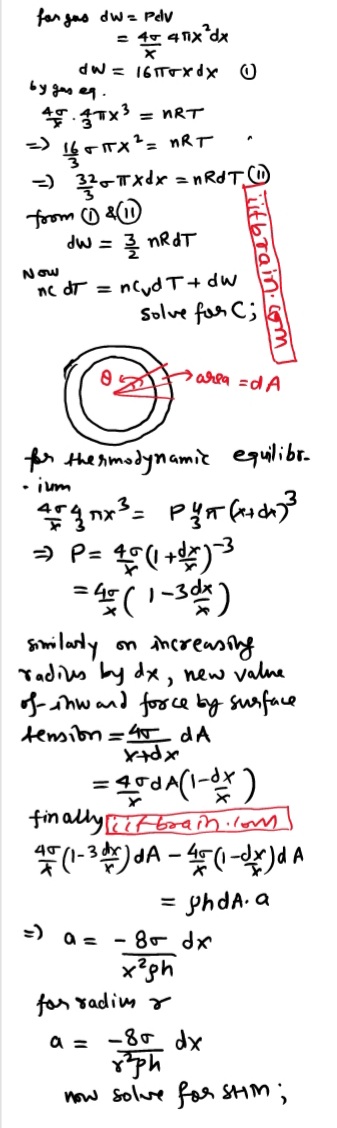 for gas dw = Pdv
= 4σ/x 4πx²dx
dw = 16πσxdx ①
by gas eq.
4σ/x · 4/3 πx³ = nRT
=) 16/3 σπx² = nRT
=) 32/3 σπxdx = nRdT ⑪
from ① & ⑪
dw = 3/2 nRdT
Now
nc dT = ncvdT + dw
Solve for C;
iitbrain.com
θ → area = dA
for thermodynamic equilibr-
-ium
4σ/x 4/3 πx³ = P 4/3 π(x+dx)³
⇒ P = 4σ/x (1+dx/x)⁻³
= 4σ/x (1-3dx/x)
similarly on increasing
radius by dx, new value
of inward force by surface
tension = 4σ/x+dx dA
= 4σ/x dA(1-dx/x)
finally iitbrain.com
4σ/x (1-3dx/x)dA - 4σ/x (1-dx/x)dA
= ρhdA.a
=) a = -8σ/x²ρh dx
for radius r
a = -8σ/r²ρh dx
now solve for SHM;